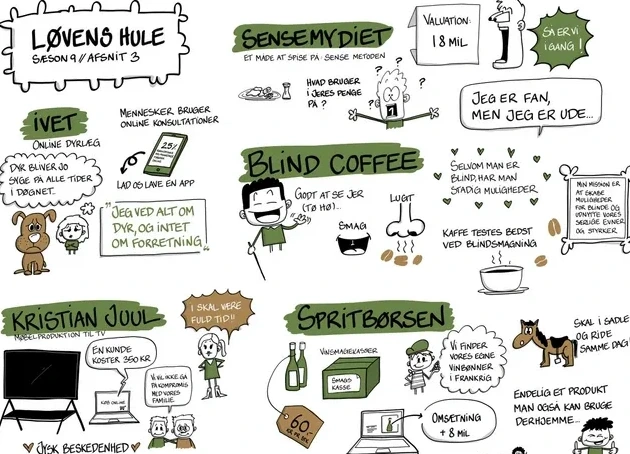 LØVENS HULE
SÆSON 9 // AFSNIT 3
SENSEMYDIET
ET MADE AT SPISE PÅ: SENSE METODEN
HVAD BRUGER
I JERES PENGE
PÅ ?
? ? ? ?
VALUATION:
18 MIL
SÅ ER VI
I GANG!
JEG ER FAN,
MEN JEG ER UDE...
iVET
ONLINE DYRLÆG
DYR BLIVER JO
SYGE PÅ ALLE TIDER
I DØGNET.
MENNESKER BRUGER
ONLINE KONSULTATIONER
25%
LAD OS LAVE EN APP
"JEG VED ALT OM
DYR, OG INTET
OM FORRETNING!"
BLIND COFFEE
GODT AT SE JER
(TØ HØ)...
SMAG
LUGT
SELVOM MAN ER
BLIND, HAR MAN
STADIG MULIGHEDER
KAFFE TESTES BEDST
VED BLINDSMAGNING
MIN MISSION ER
AT SKABE
MULIGHEDER
FOR BLINDE OG
UDNYTTE VORES
SÆRLIGE EVNER
OG STYRKER
KRISTIAN JUUL
MØBELPRODUKTION TIL TV
EN KUNDE
KOSTER 350 KR
KØB ONLINE
VI VIL IKKE GÅ
PÅ KOMPROMIS
MED VORES
FAMILIE
I SKAL VÆRE
FULD TID!!
JYSK BESKEDENHED
SPRITBØRSEN
VINSMAGEKASSER
SMAGS
KASSE
60,-
VI FINDER
VORES EGNE
VINBØNNER
I FRANKRIG
OMSÆTNING
+ 8 MIL
SKAL I SADLE
OG RIDE
SAMME DAG!
ENDELIG ET PRODUKT
MAN OGSÅ KAN BRUGE
DERHJEMME...